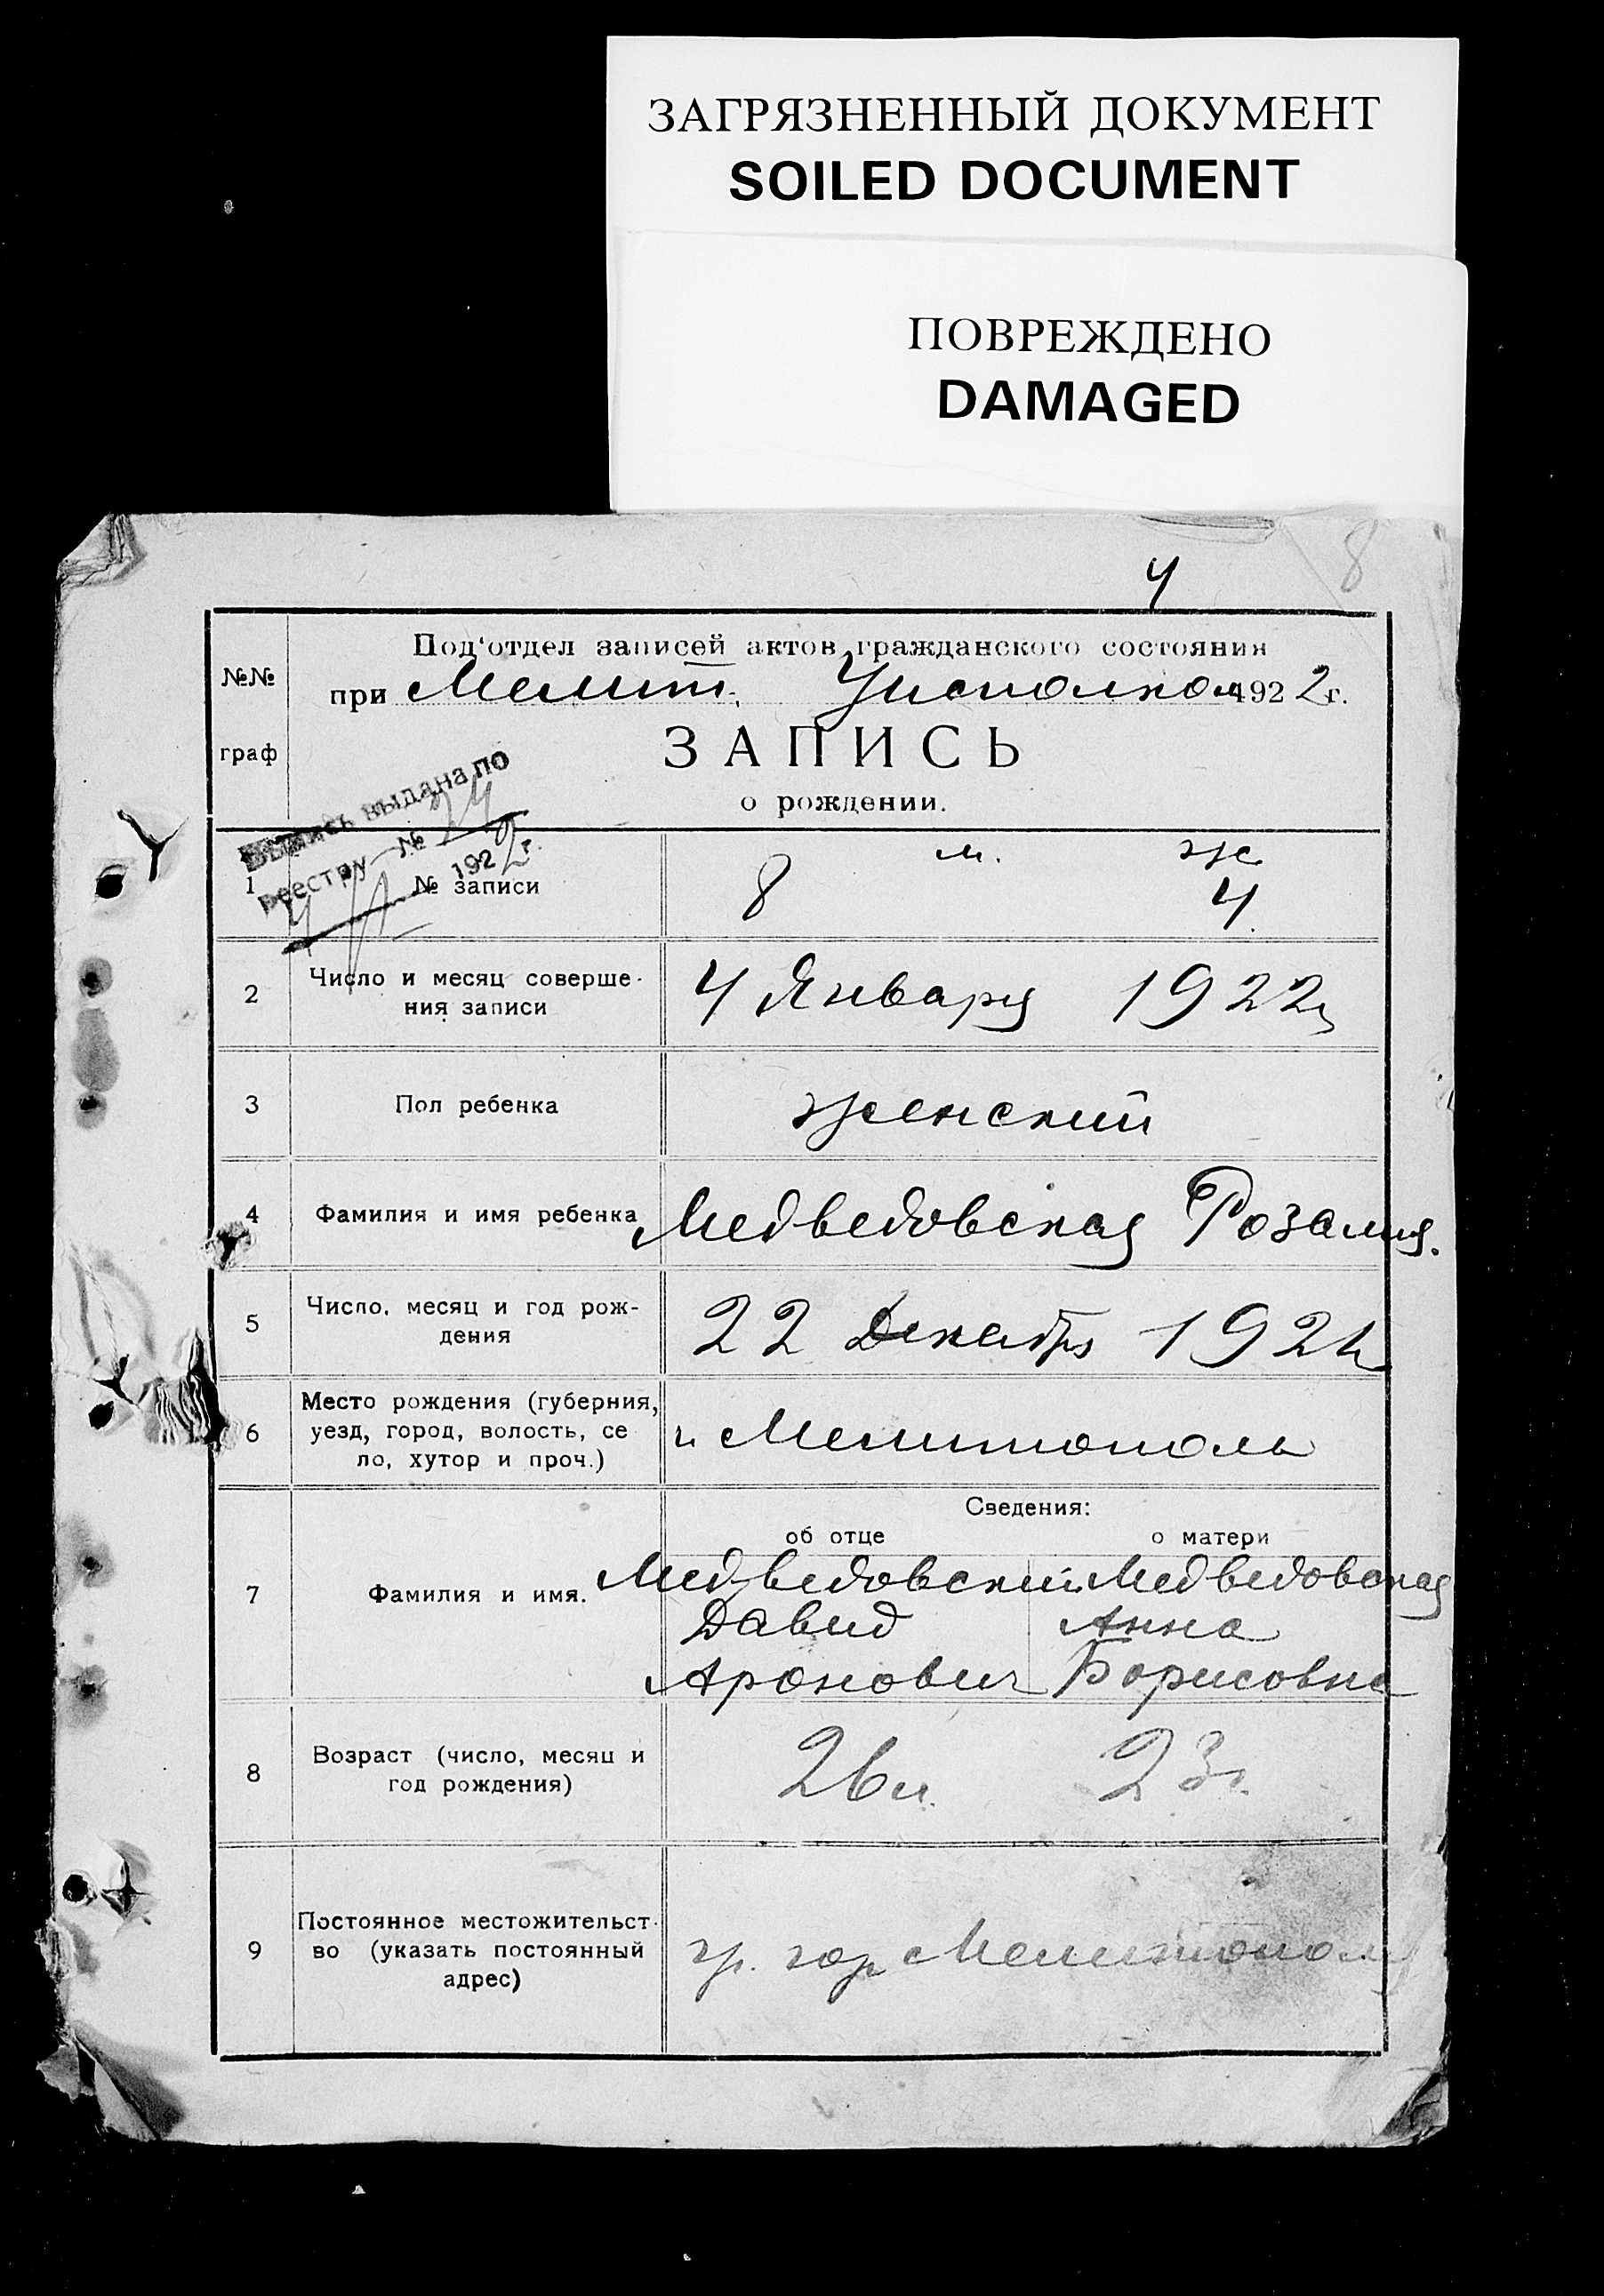 ЗАГРЯЗНЕННЫЙ ДОКУМЕНТ
SOILED DOCUMENT
ПОВРЕЖДЕНО
DAMAGED
8
4
№№
граф
Под'отдел записей актов гражданского состояния
при Мелит. Уисполком 1922 г.
ЗАПИСЬ
о рождении.
Выпись выдана по
реестру № 24
1922 г.
1 № записи 8 м. ж 4
2 Число и месяц соверше-
ния записи
4 Января 1922 г
3 Пол ребенка женский
4 Фамилия и имя ребенка Медведовская Розалия.
5 Число, месяц и год рож-
дения
22 Декабря 1921
6 Место рождения (губерния,
уезд, город, волость, се
ло, хутор и проч.)
г. Мелитополь
Сведения:
об отце о матери
7 Фамилия и имя. Медведовский Медведовская
Давид Анна
Аронович Борисовна
8 Возраст (число, месяц и
год рождения)
26 л. 23 г.
9 Постоянное местожительст-
во (указать постоянный
адрес)
гр. гор Мелитополя